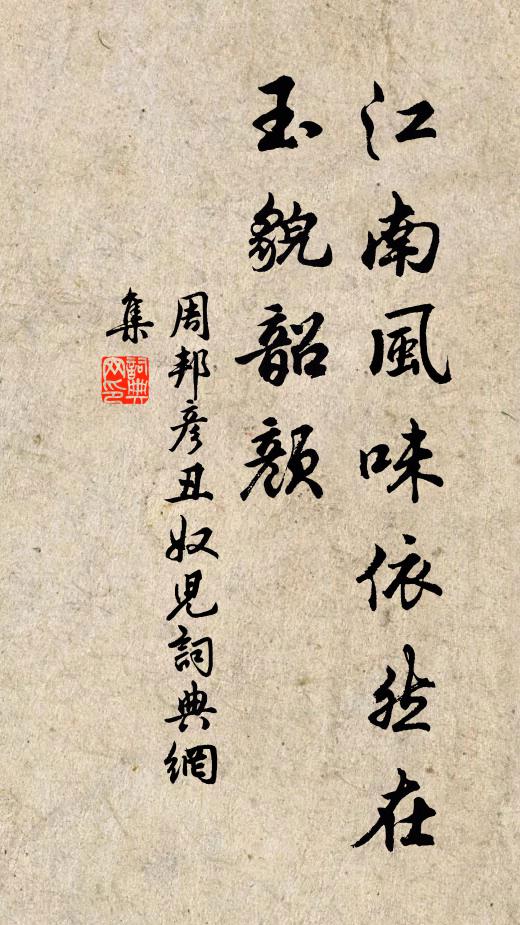 江南風味依然在
玉貌韶顏
周邦彥丑奴兒詞典網
集
詞典
網印